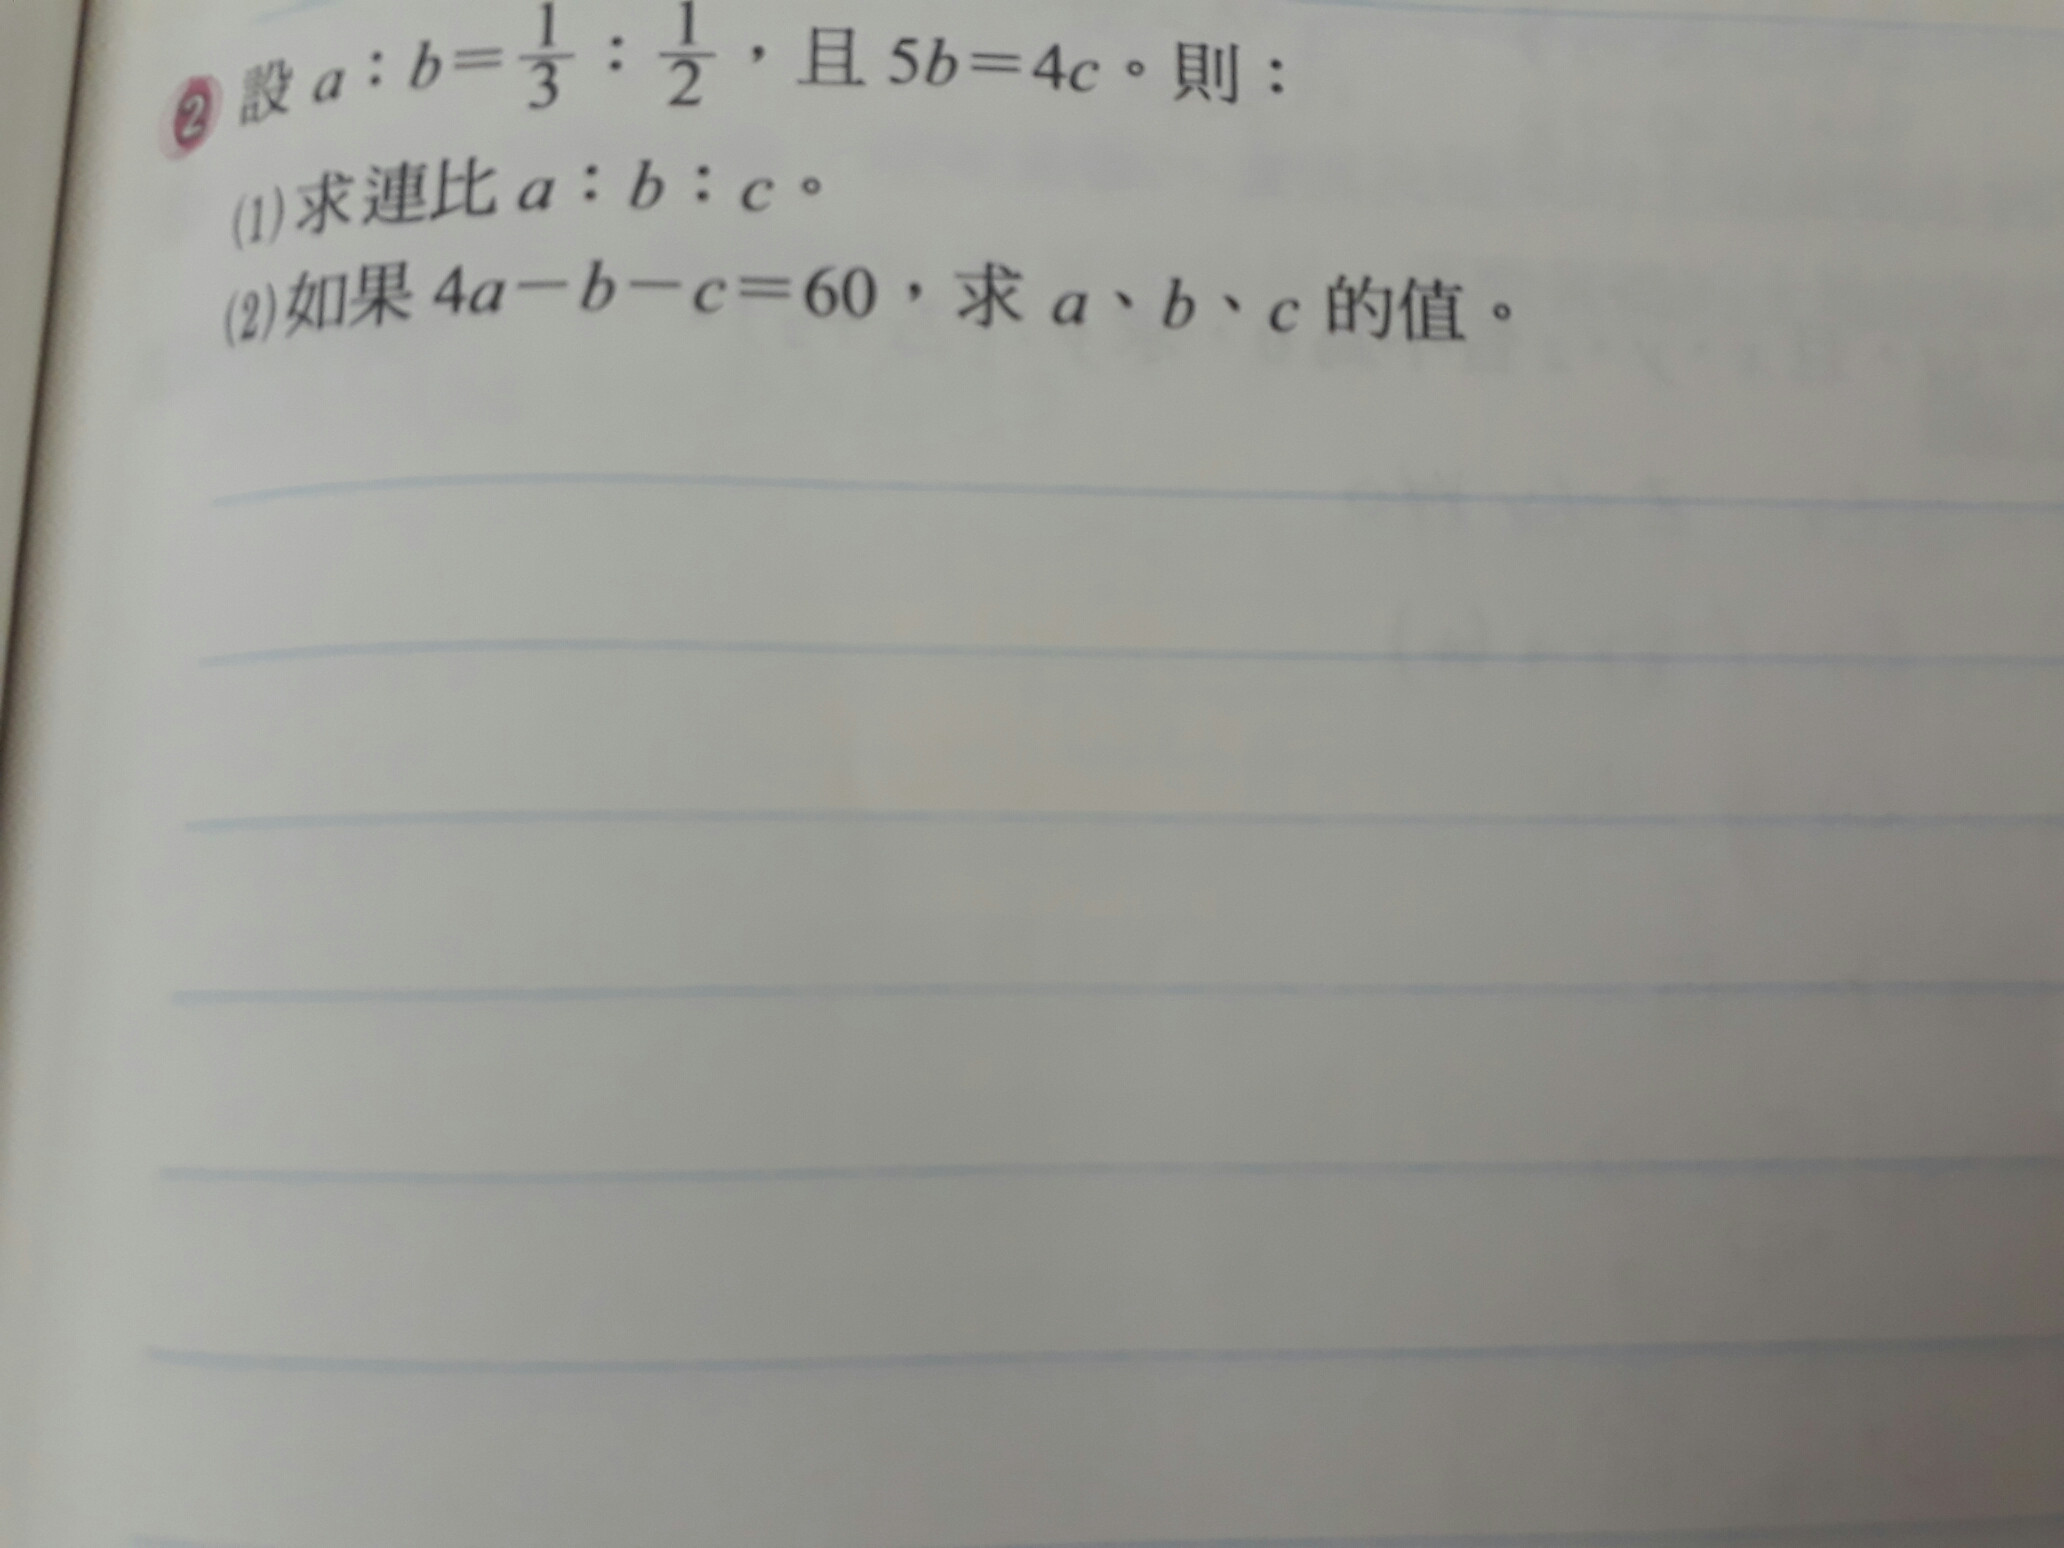 2 設 a：b＝1/3：1/2，且 5b＝4c。則：
(1)求連比 a：b：c。
(2)如果 4a－b－c＝60，求 a、b、c 的值。